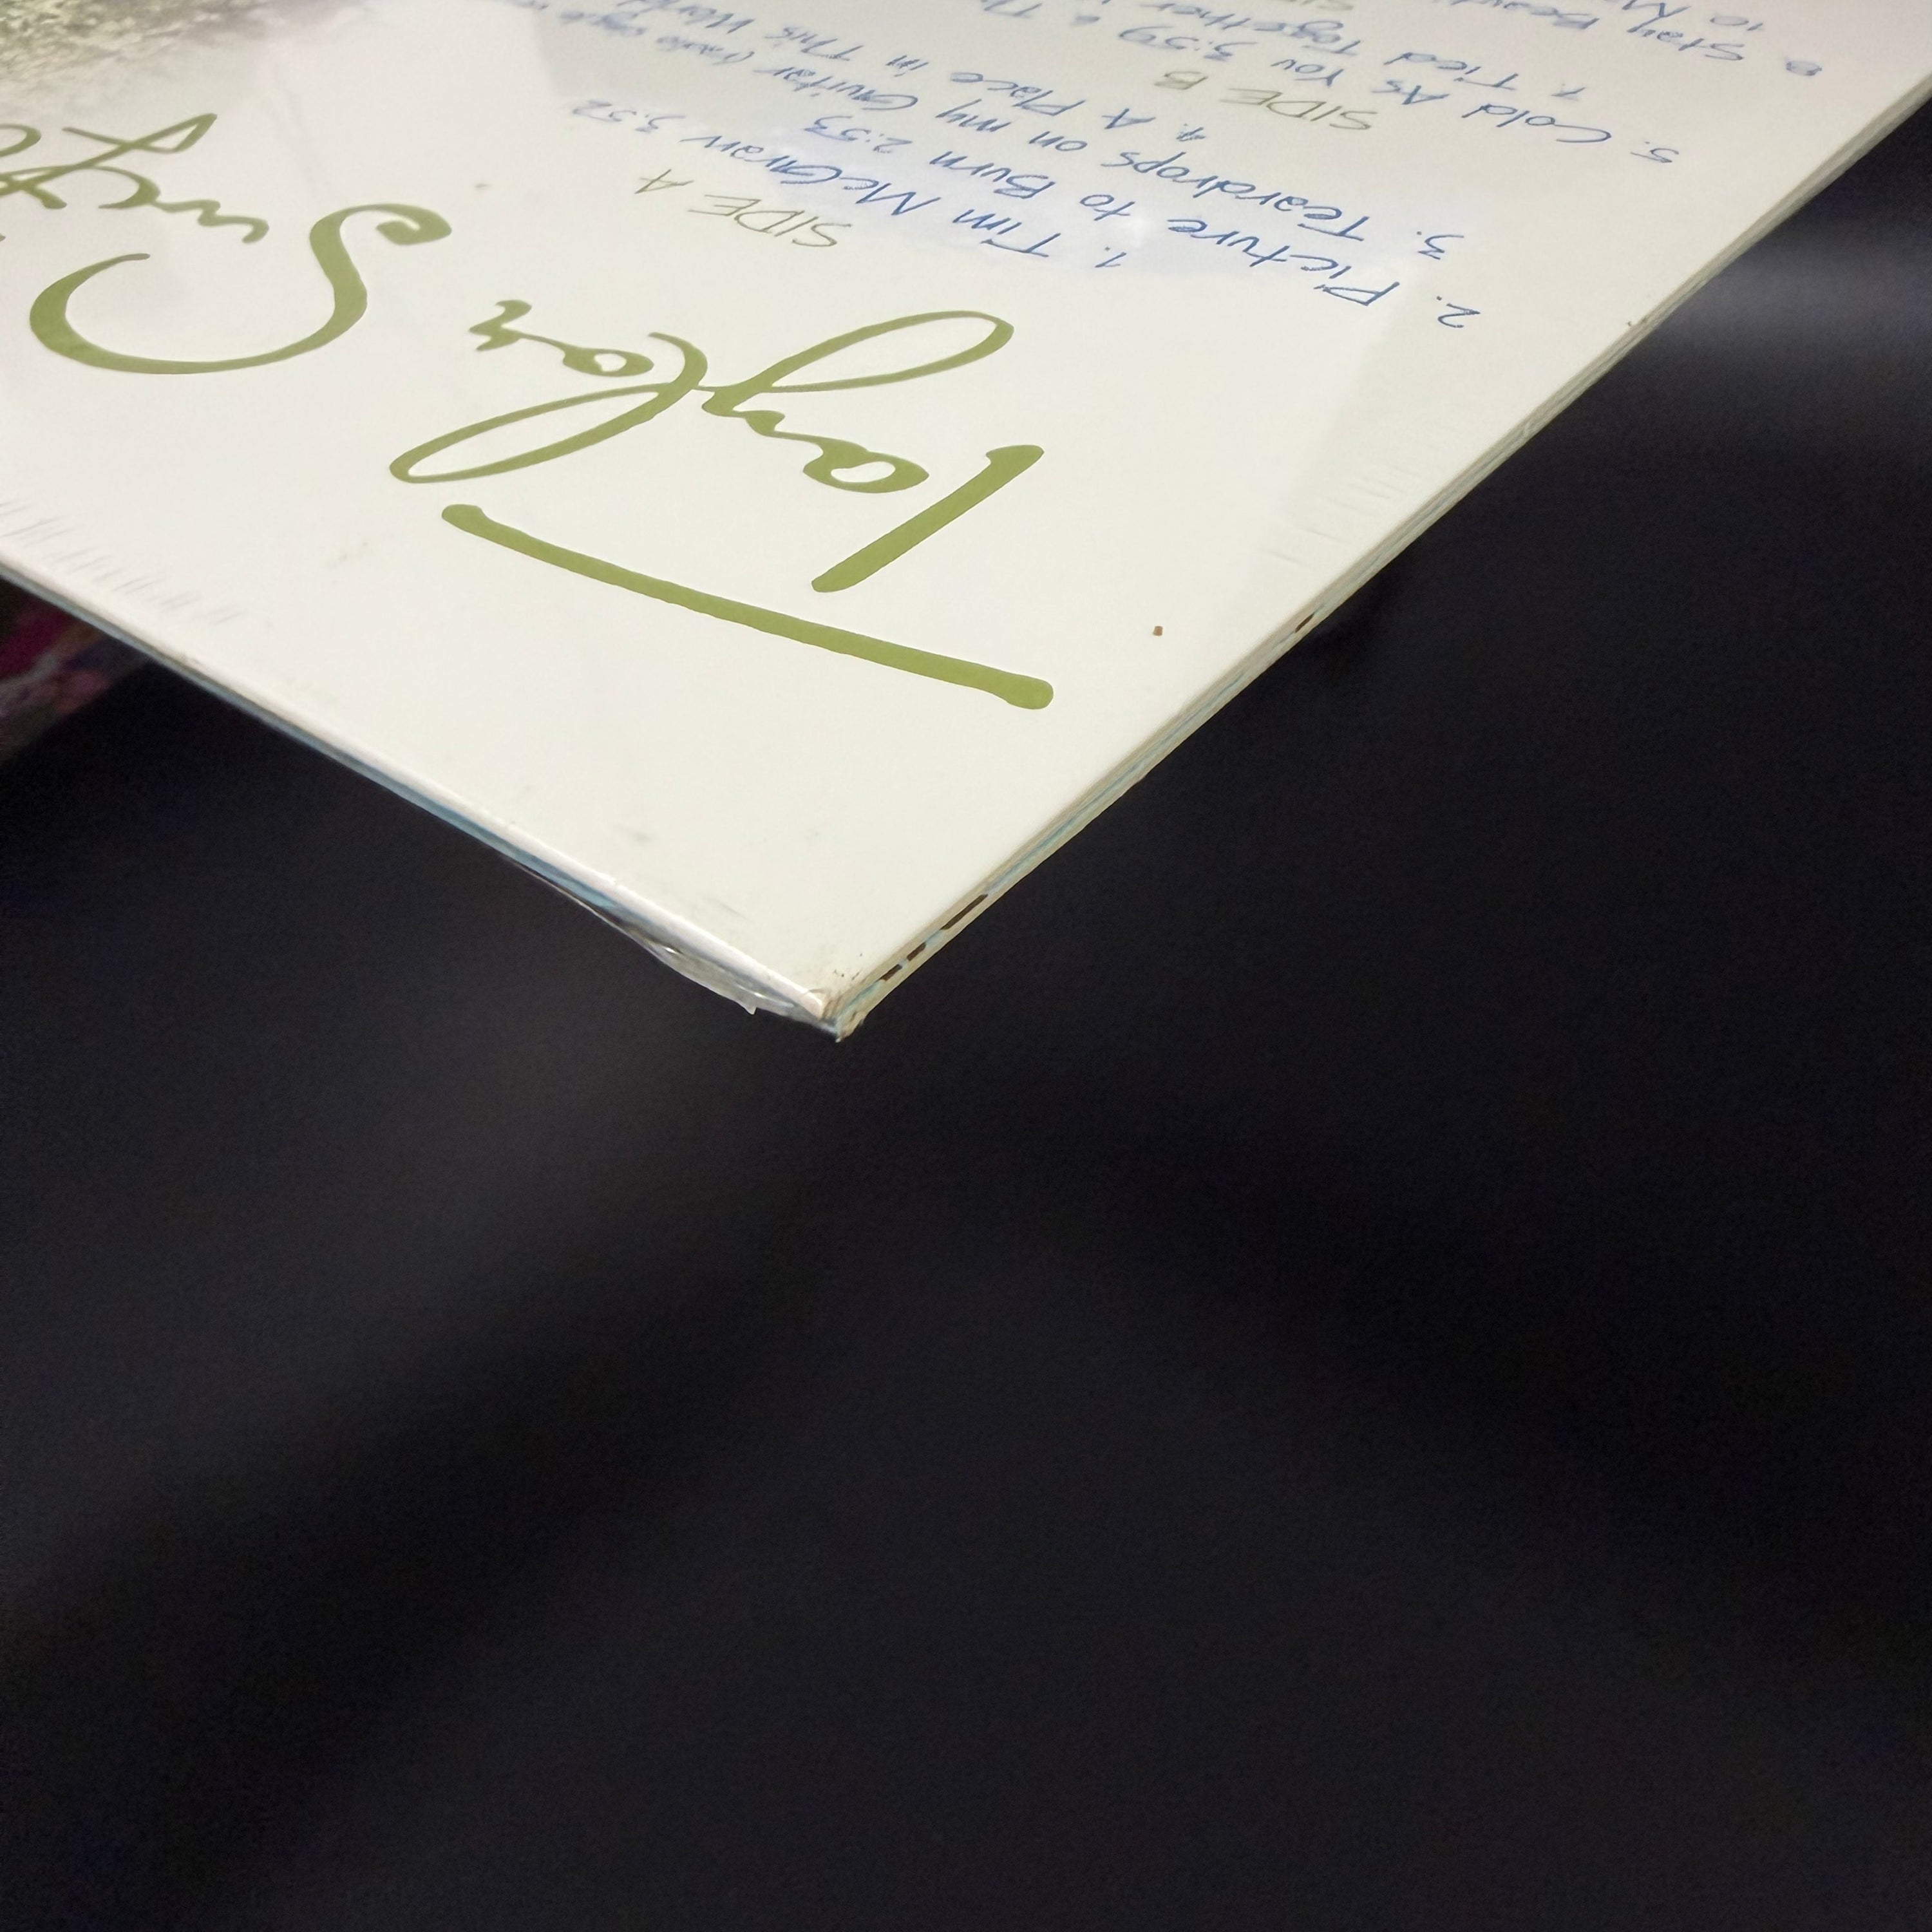 Taylor Swift
SIDE A
1. Tim McGraw 3:52
2. Picture to Burn 2:53
3. Teardrops on my Guitar
4. A Place in This World
SIDE B
5. Cold As You 3:59
7. Tied Together
8 Stay
10